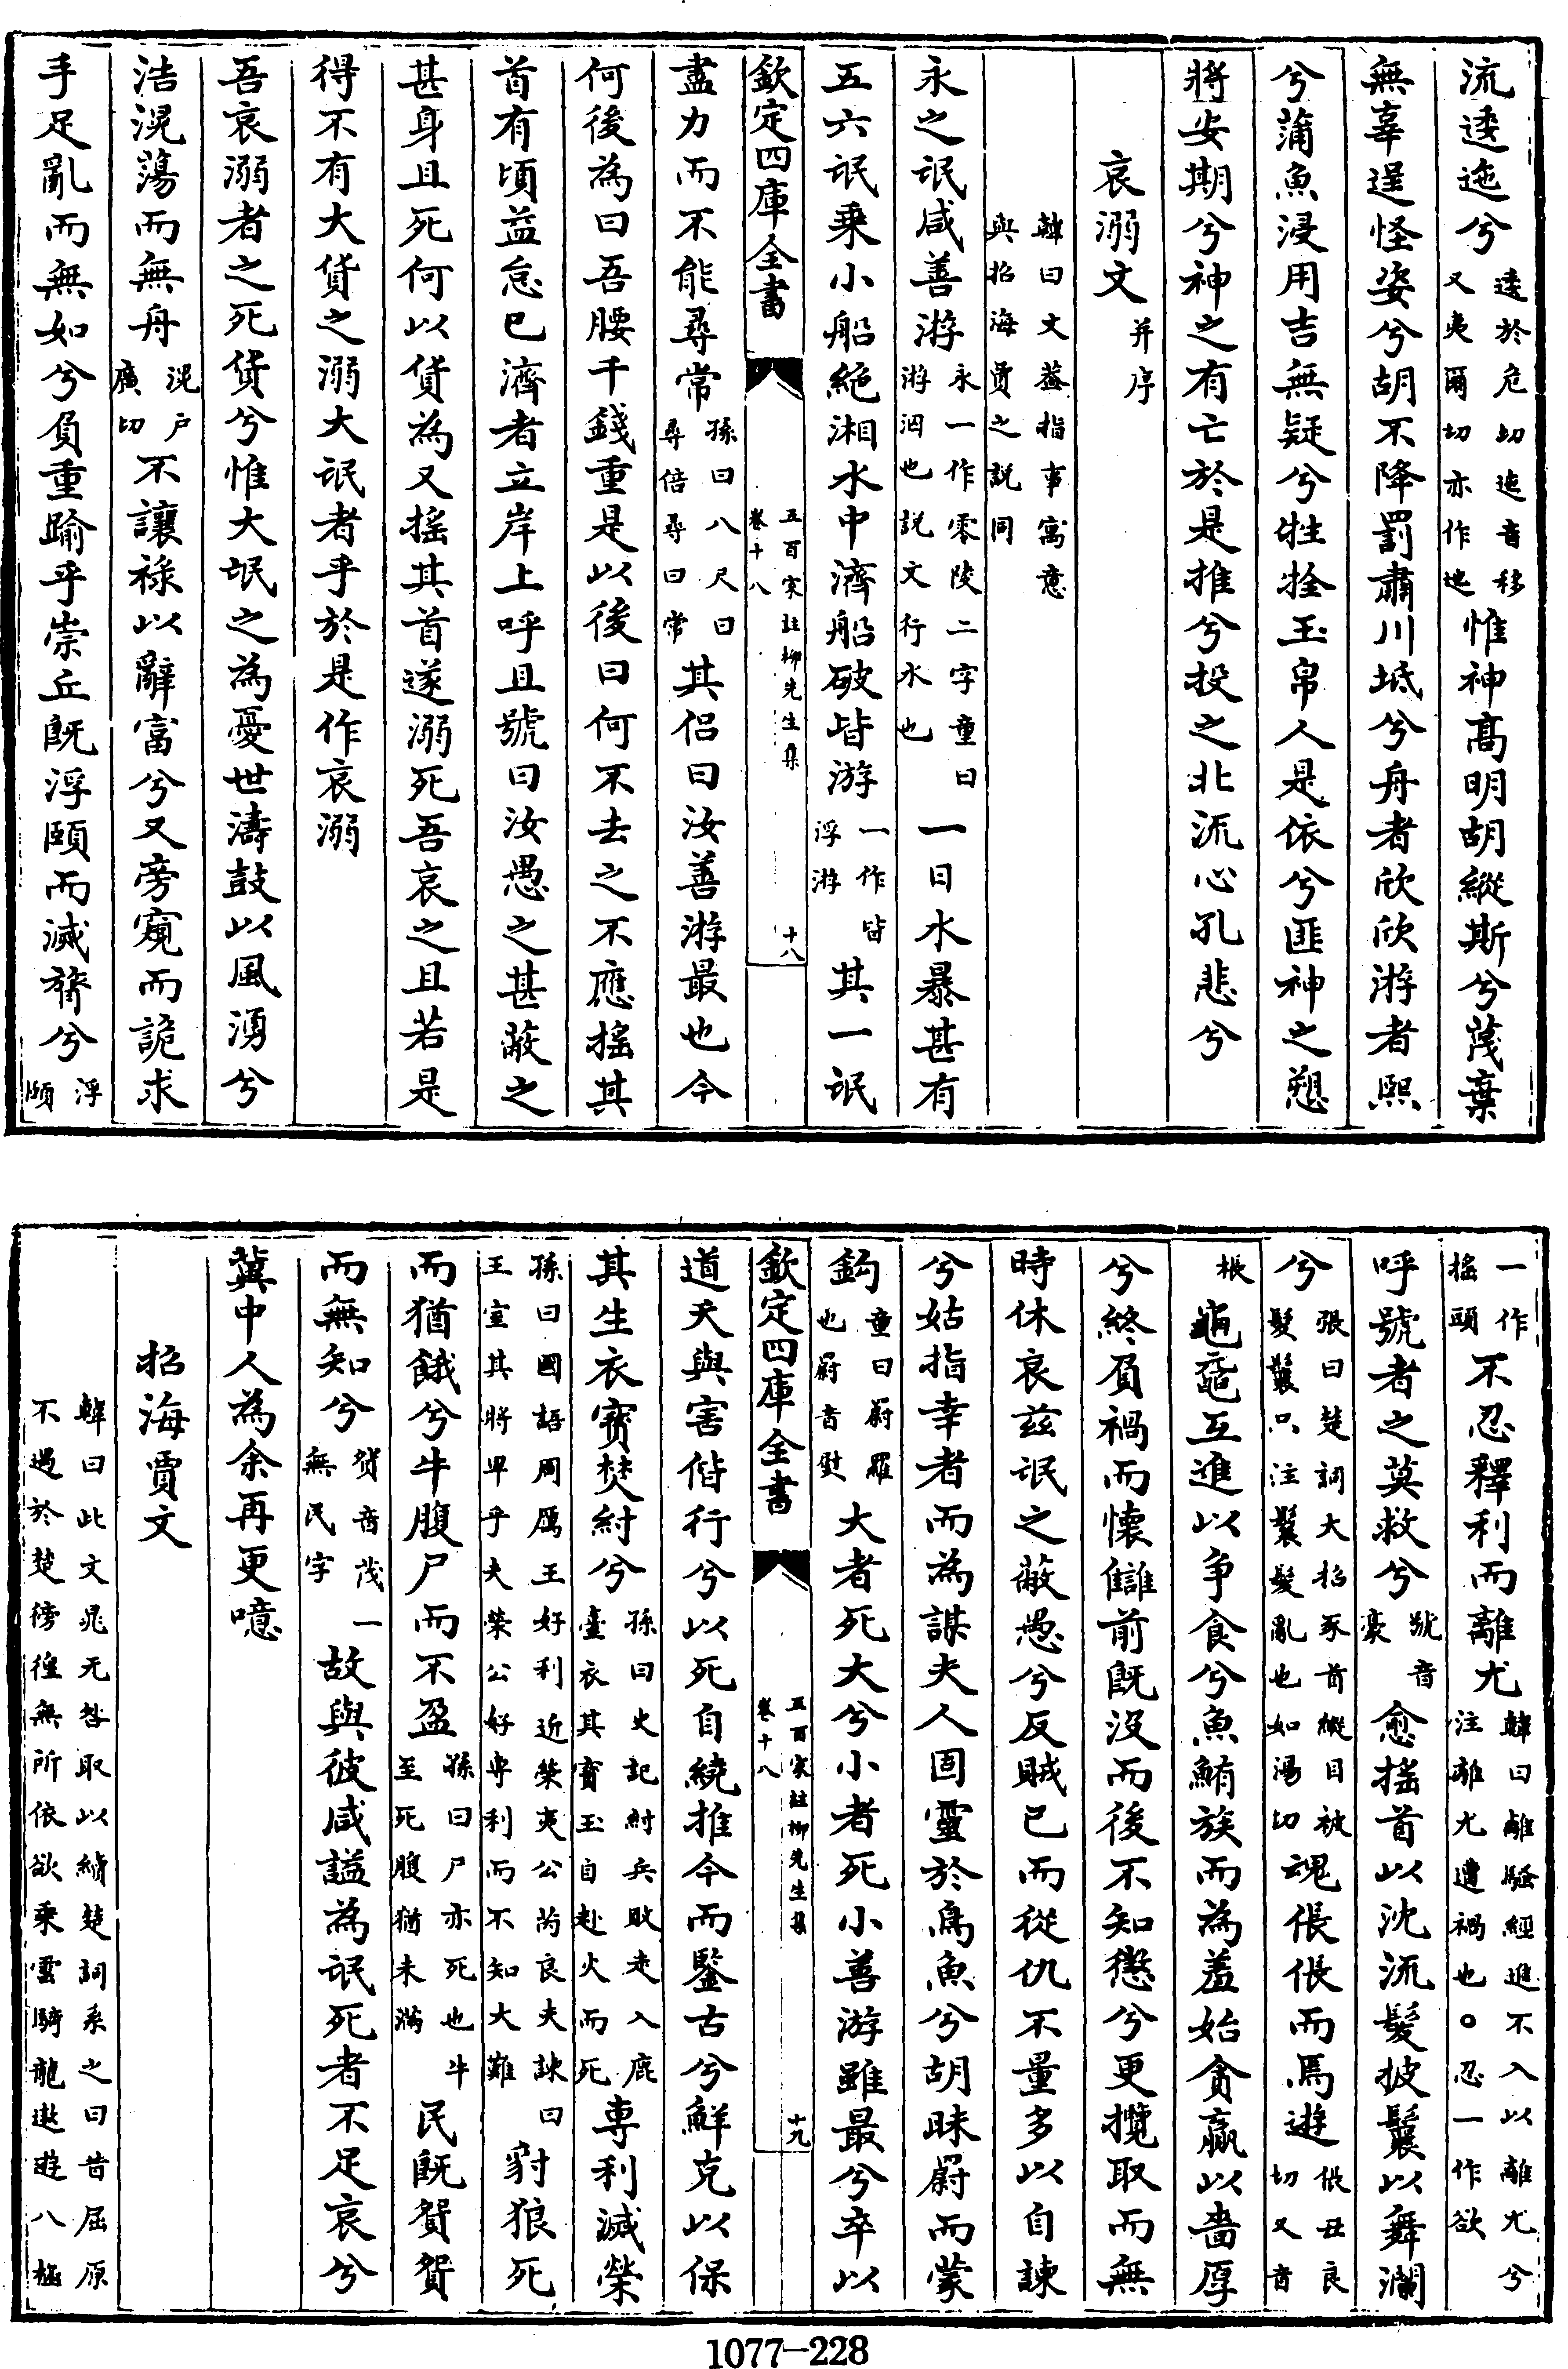 流逶迤兮逶於危切迤音移又夷爾切亦作迆惟神高明胡縱斯兮蔑棄
無辜逞怪姿兮胡不降罰肅川坻兮舟者欣欣游者熙
兮蒲魚浸用吉無疑兮牲拴玉帛人是依兮匪神之愬
將安期兮神之有亡於是推兮投之北流心孔悲兮
哀溺文并序
韓曰文蓋指事寓意與招海賈之説同
永之氓咸善游永一作零陵二字童曰游泅也説文行水也一日水暴甚有
五六氓乗小船絶湘水中濟船破皆游一作皆浮游其一氓
欽定四庫全書
五百家註柳先生集
卷十八
十八
盡力而不能尋常孫曰八尺曰尋倍尋曰常其侣曰汝善游最也今
何後為曰吾腰千錢重是以後曰何不去之不應揺其
首有頃益怠已濟者立岸上呼且號曰汝愚之甚蔽之
甚身且死何以貨為又揺其首遂溺死吾哀之且若是
得不有大貨之溺大氓者乎於是作哀溺
吾哀溺者之死貨兮惟大氓之為憂世濤鼓以風湧兮
浩滉蕩而無舟滉户廣切不讓祿以辭富兮又旁窺而詭求
手足亂而無如兮負重踰乎崇丘既浮頤而滅膂兮浮頤
一作揺頭不忍釋利而離尤韓曰離騷經進不入以離尤兮注離尤遭禍也○忍一作欲
呼號者之莫救兮號音豪愈揺首以沈流髪披鬤以舞瀾
兮張曰楚詞大招豕首縱目被髮鬤只注鬤髮亂也如湯切魂倀倀而焉遊倀丑良切又音
棖龜黿互進以争食兮魚鮪族而為羞始貪贏以嗇厚
兮終負禍而懷讎前既没而後不知懲兮更攬取而無
時休哀兹氓之蔽愚兮反賊已而從仇不量多以自諫
兮姑指幸者而為謀夫人固靈於鳥魚兮胡昧罻而蒙
鈎童曰罻羅也罻音尉大者死大兮小者死小善游雖最兮卒以
欽定四庫全書
五百家註柳先生集
卷十八
十九
道夭與害偕行兮以死自繞推今而鑒古兮鮮克以保
其生衣寳焚紂兮孫曰史記紂兵敗走入鹿臺衣其寳玉自赴火而死專利滅榮
孫曰國語周厲王好利近榮夷公芮良夫諫曰王室其將卑乎夫榮公好専利而不知大難豺狼死
而猶餓兮牛腹尸而不盈孫曰尸亦死也牛至死腹猶未滿民既貿貿
而無知兮貿音茂一無民字故與彼咸謚為氓死者不足哀兮
冀中人為余再更噫
招海賈文
韓曰此文晁无咎取以續楚詞系之曰昔屈原不過於楚徬徨無所依欲乗雲騎龍遨遊八極
1077—228